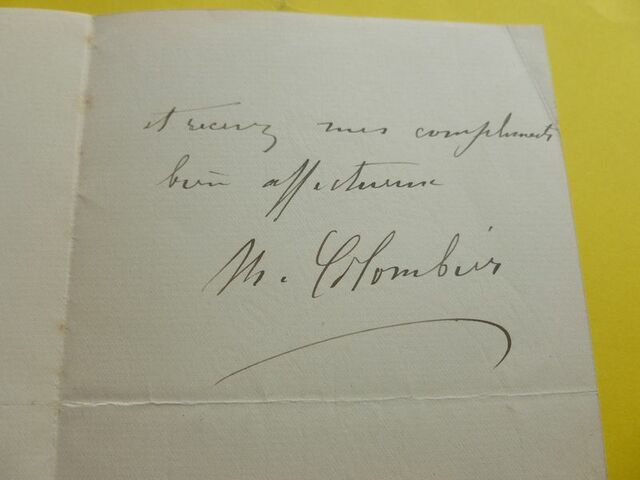 et recevez mes compliments
bien affectueux
M. Colombier